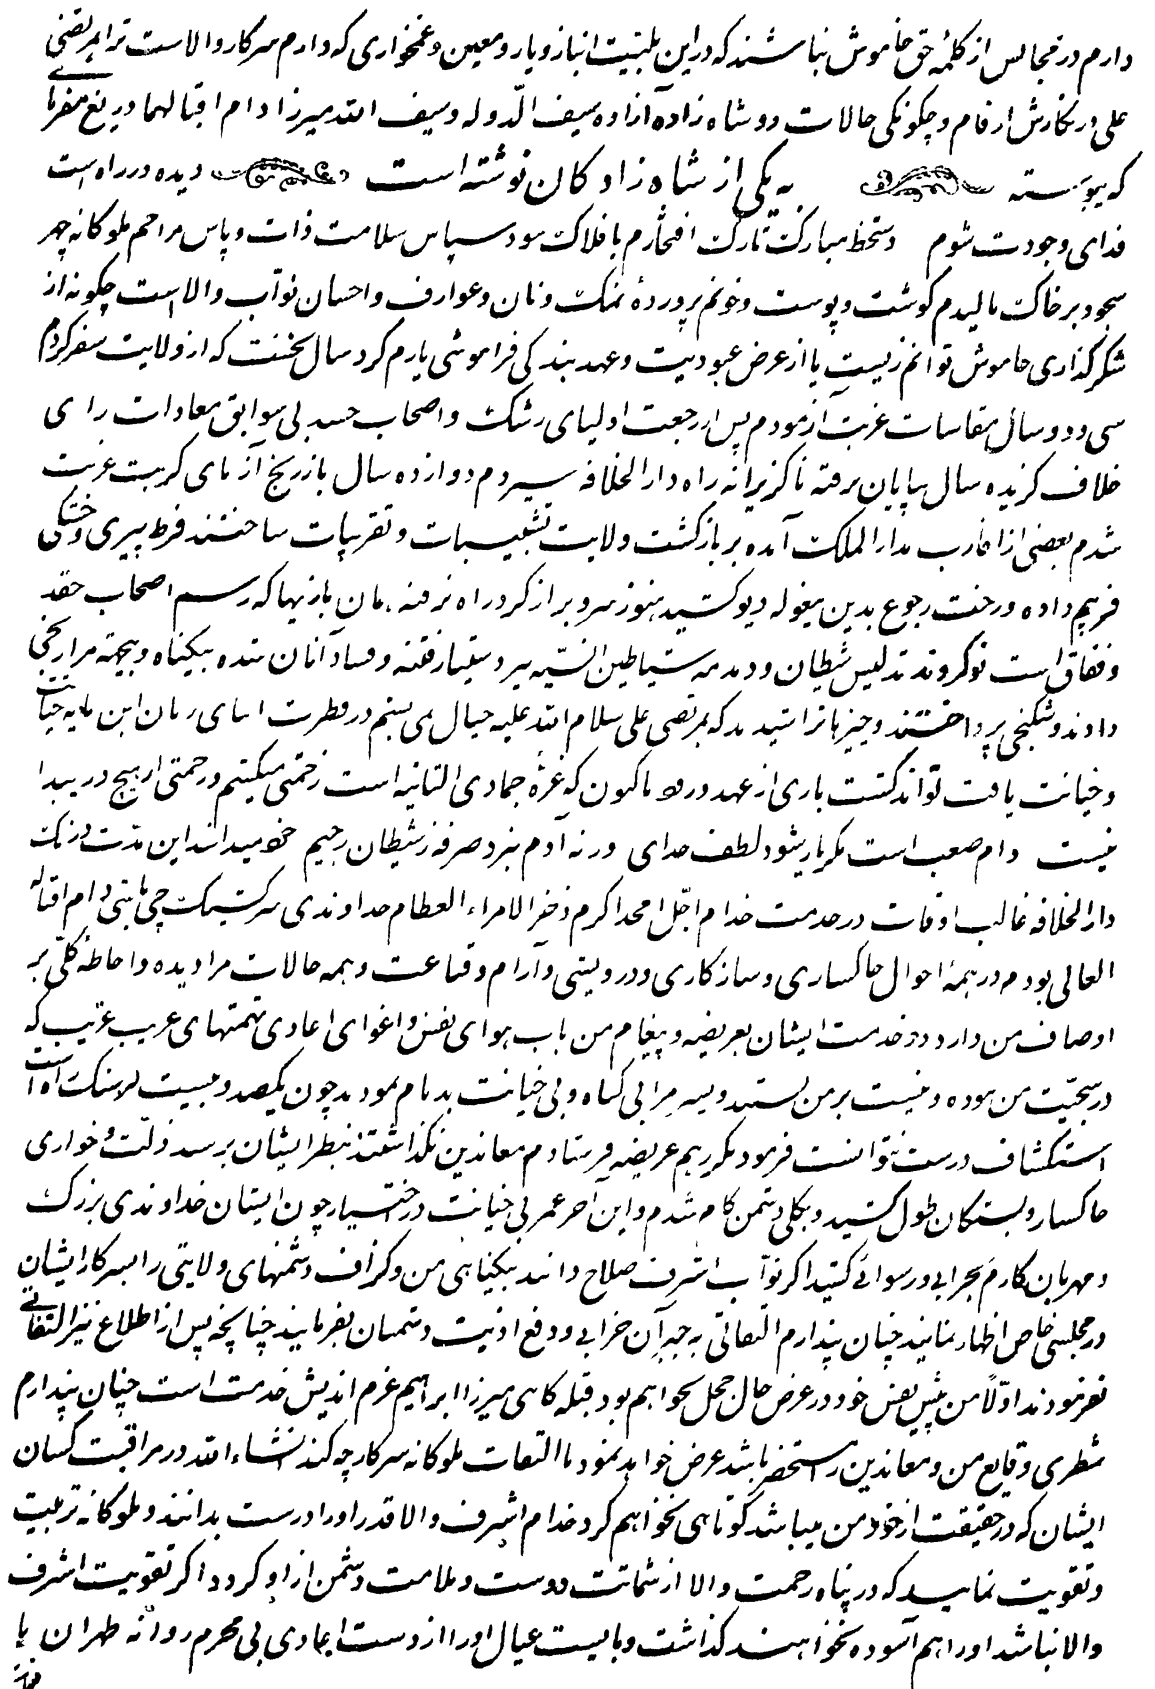 دارم در مجالس از کلمهٔ حق خاموش نباشند که در این بلیت انباز و یار و معین و غمخواری که دارم سرکار والاست ترا بمرتضی
علی در نگارش ارقام و چگونگی حالات دو شاه زاده آزاده سیف الدوله و سیف الله میرزا دام اقبالهما دریغ مفرمای
که پیوسته به یکی از شاه زادگان نوشته است دیده در راه است
فدای وجودت شوم دستخط مبارکت تارک افتخارم بافلاک سود سپاس سلامت ذات و پاس مراحم ملوکانه چهر
سجود بر خاک مالیدم گوشت و پوست و خونم پروردهٔ نمک و نان و عوارف و احسان نوّاب والاست چگونه از
شکرگذاری خاموش توانم زیست یا از عرض عبودیت و عهد بندگی فراموشی یارم کرد سال نخست که از ولایت سفر کردم
سی و دو سال مقاسات غربت آزمودم پس از رجعت اولیای رشک و اصحاب حسد بی سوابق معادات رای
خلاف گزیده سال بپایان نرفته ناگزیرانه راه دارالخلافه سپردم دوازده سال باز رنج آزمای کربت غربت
شدم بعضی از اقارب بدارالملک آمده بر بازگشت ولایت تشبیبات و تقریبات ساختند فرط پیری و خستگی
فریبم داده و رخت رجوع بدین بیغوله دیو کشید هنوز سر و بر از گرد راه نرفته همان بازیها که رسم اصحاب حقد
و نفاق است نو کردند تدلیس شیطان و دمدمه شیاطین الانسیّه نیز دستیار فتنه و فساد آنان شده بیگناه و بیجهة مرا رنجی
دادند و شکنجی پرداختند و چیزها تراشیدند که بمرتضی علی سلام الله علیه خیال نمی بینم در فطرت ابنای زمان این مایه خباثت
و خیانت یافت تواند گشت باری از عهد ورود تا کنون که غرّهٔ جمادی الثانیه است زخمی میکشم و رحمتی از هیچ در پیدا
نیست دام صعب است مگر یار شود لطف خدای ورنه آدم نبرد صرفه ز شیطان رجیم خود میدانند این مدت درنگ
دارالخلافه غالب اوقات در خدمت خدام اجلّ امجد اکرم فخر الامراء العظام خداوندی سرکشیک چی باشی دام اقباله
العالی بودم در همهٔ احوال خاکساری و سازکاری و درویشی و آرام و قناعت و همه حالات مرا دیده و احاطهٔ کلّی بر
اوصاف من دارد در خدمت ایشان بعریضه و پیغام من باب هوای نفس و اغوای اعادی تهمتهای عریب غریب که
در سجیّت من نبوده و نیست بر من بستند و پسر مرا بی گناه و بی خیانت بدنام نمودند چون یکصد و بیست فرسنگ راه است
استکشاف درست نتوانست فرمود مکرر هم عریضه فرستادم معاندین نگذاشتند بنظر ایشان برسد ذلّت و خواری
خاکسار و بستگان طول کشید و بکلی دشمن کام شدم و این آخر عمر بی خیانت در اختیار چون ایشان خداوندی بزرگ
و مهربان کارم بخرابی و رسوائی کشید اگر نوّاب اشرف صلاح دانند بیگناهی من و گزاف دشمنهای ولایتی را بسرکار ایشان
در مجلسی خاص اظهار نمایند چنان پندارم التفاتی به جبر آن خرابی و دفع اذیت دشمنان بفرمایند چنانچه پس از اطلاع نیز التفاتی
نفرمودند اوّلاً من پیش نفس خود در عرض حال خجل نخواهم بود قبله گاهی میرزا ابراهیم عزم اندیش خدمت است چنان پندارم
شطری وقایع من و معاندین را مستحضر باشد عرض خواهد نمود تا التفات ملوکانه سرکار چه کند انشاءالله در مراقبت کسان
ایشان که در حقیقت از خود من میباشد کوتاهی نخواهم کرد خدام اشرف والا قدر او را درست بدانند و ملوکانه تربیت
و تقویت نمایند که در پناه رحمت والا از شماتت دوست و ملامت دشمن آزاد گردد اگر تقویت اشرف
والا نباشد او را هم آسوده نخواهند گذاشت و بایست عیال او را از دست اعادی بی محرم روانه طهران یا